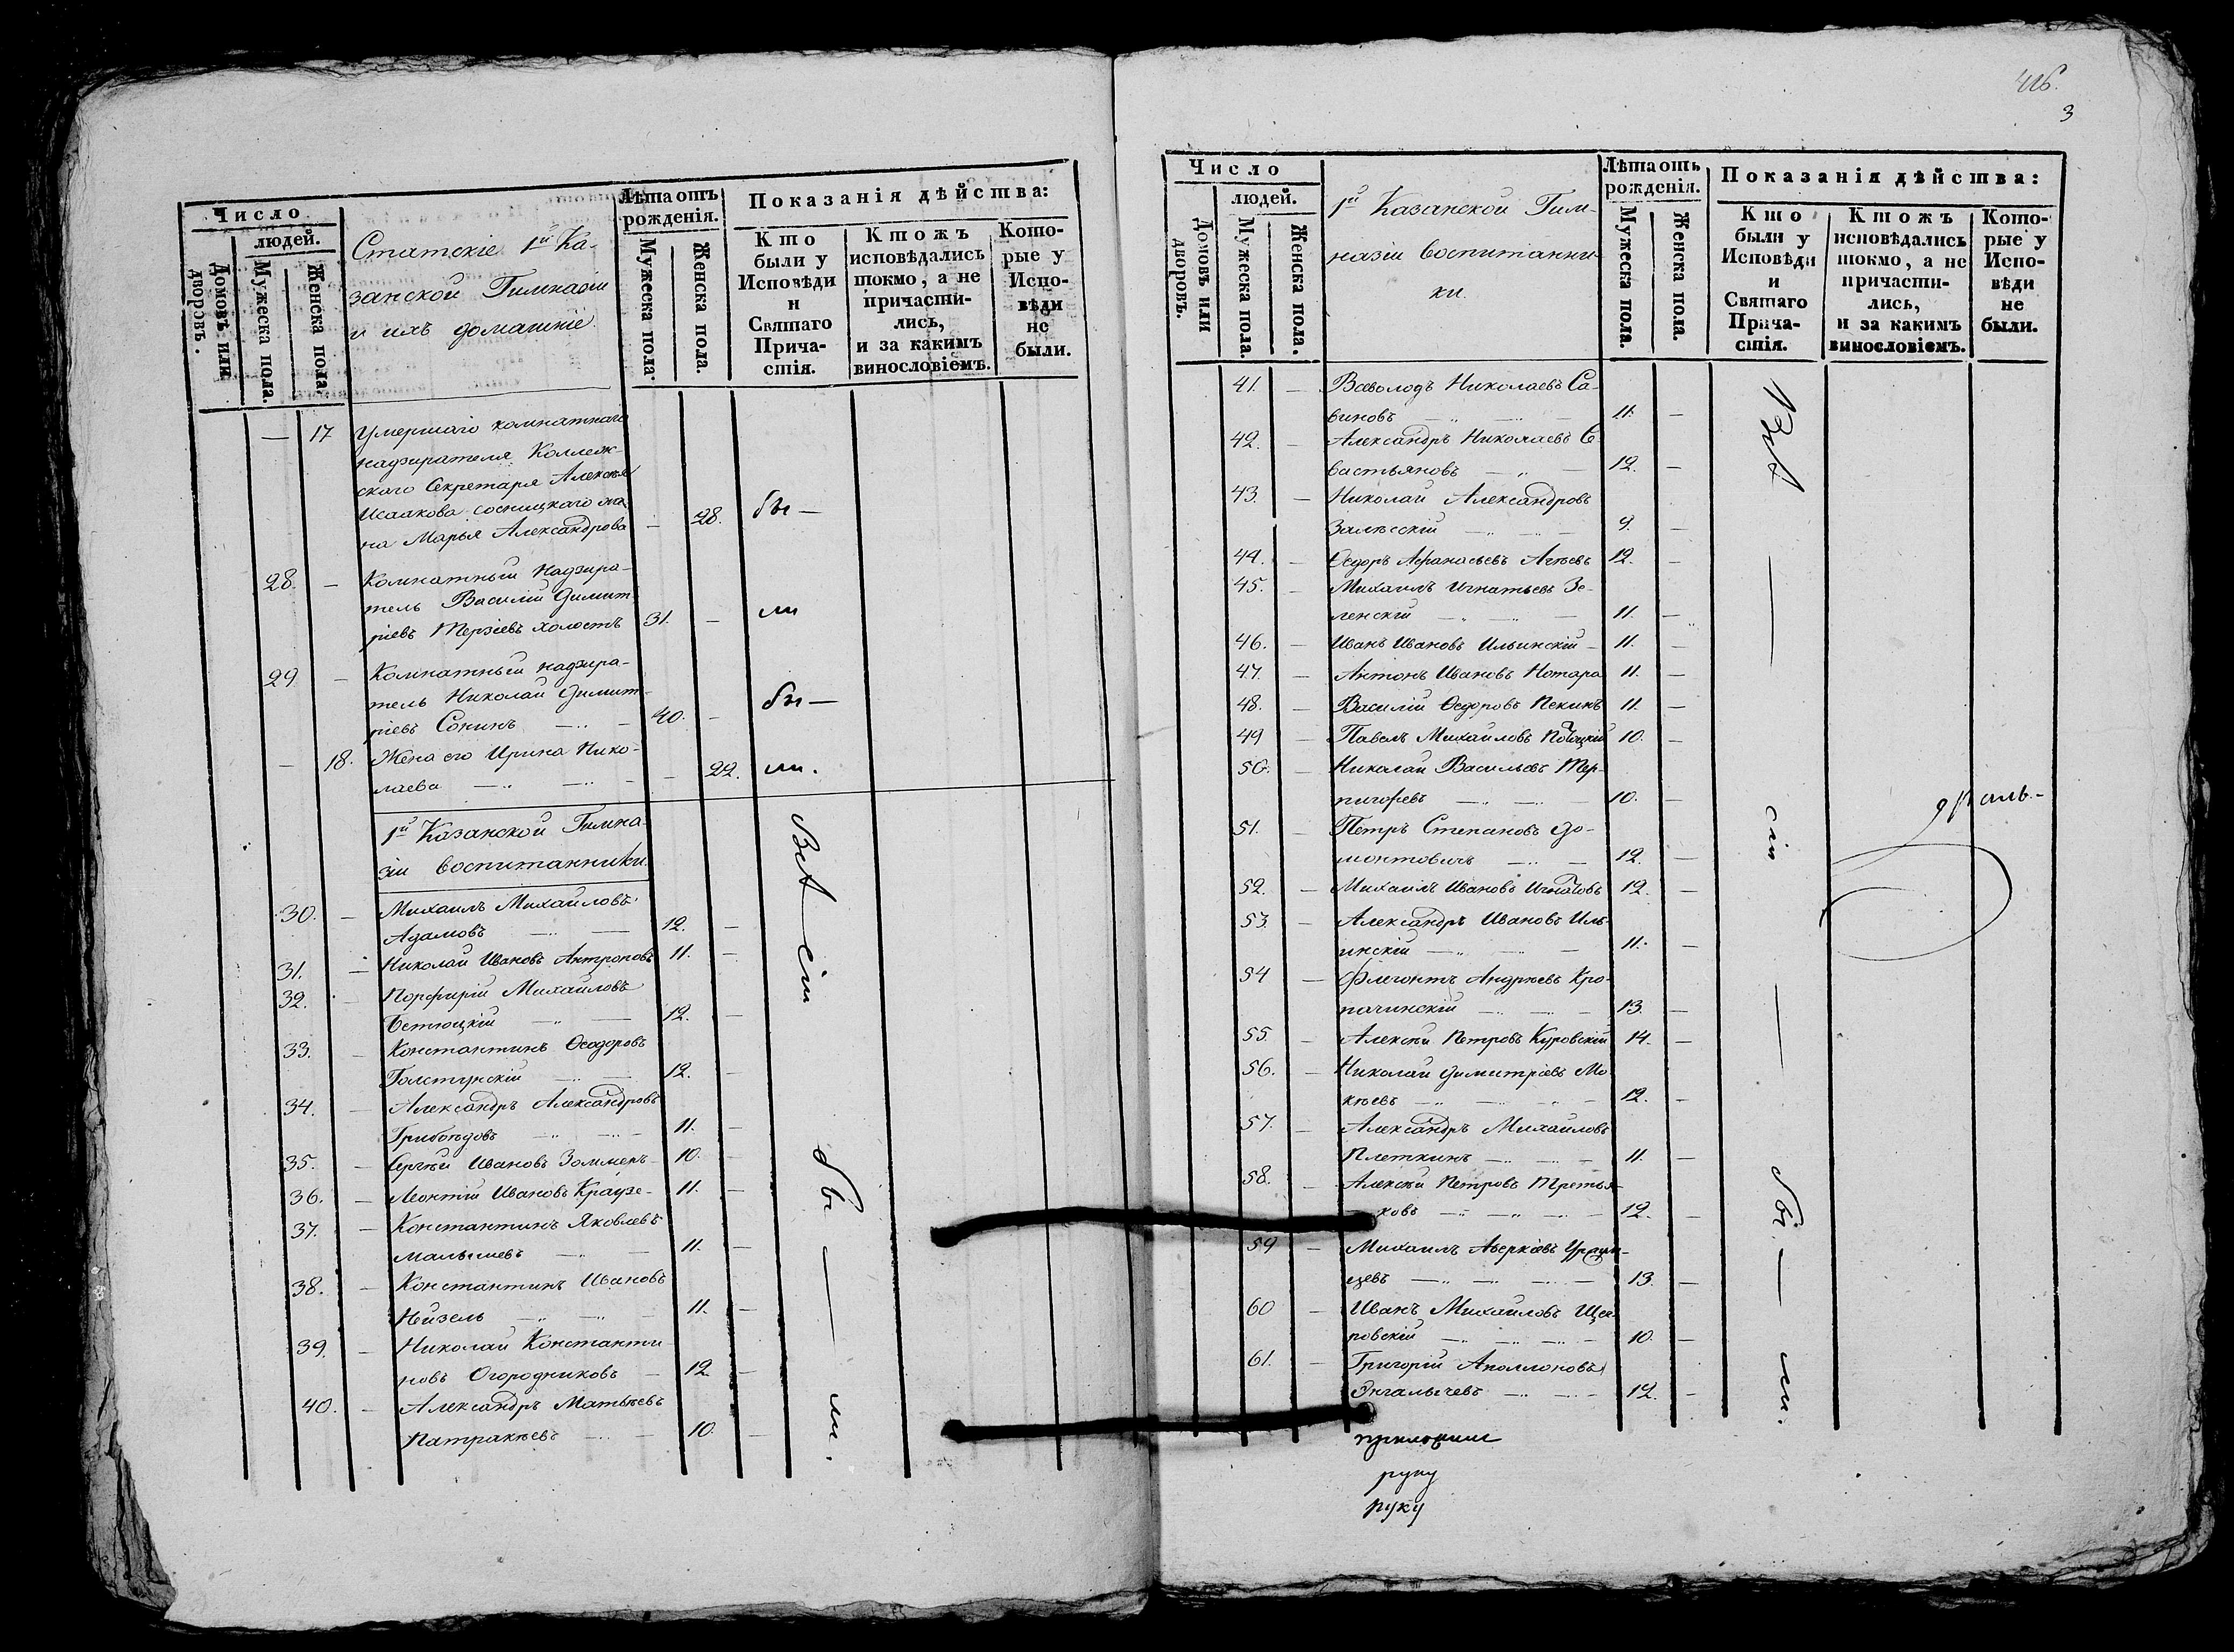 Число
людей.
Домовъ или дворовъ.
Мужеска пола.
Женска пола.
Статскіе 1й Ка-
занской Гимназіи
и ихъ домашніе.
Лѣта отъ
рожденія.
Мужеска пола.
Женска пола.
Показанія дѣйства:
Кто
были у
Исповѣди
и
Святаго
Прича-
стія.
Ктожъ
исповѣдались
токмо, а не
причасти-
лись,
и за какимъ
винословіемъ.
Кото-
рые у
Испо-
вѣди
не
были.
— 17 Умершаго комнатнаго
надзирателя Коллеж-
скаго Секретаря Алексѣя
Исаакова Сосницкаго же-
на Марья Александрова — 28. бы —
28. — Комнатный надзира-
тель Василій Димит-
ріевъ Терзіевъ холостъ 31. — ли
29 — Комнатный надзира-
тель Николай Димит-
ріевъ Сонинъ 40. — бы —
— 18. Жена его Ирина Нико-
лаева — 22. ли.
1й Казанской Гимна-
зіи воспитанники.
30. — Михаилъ Михайловъ
Адамовъ 12. —
31. — Николай Ивановъ Антроповъ 11. —
32. — Порфирій Михайловъ
12. —
33. — Константинъ Ѳеодоровъ
Голстунскій 12. —
34. — Александръ Александровъ
Грибоѣдовъ 11. —
35. — Сергѣй Ивановъ 10. —
36. — Леонтій Ивановъ Краузе 11. —
37. — Константинъ Яковлевъ
Малышевъ 11. —
38. — Константинъ Ивановъ
Нейзель 11. —
39. — Николай Константи
новъ Огородниковъ 12 —
40. — Александръ Матвѣевъ
Патракѣевъ 10. —
Всѣ сіи бы — ли.
416.
3
Число
людей.
Домовъ или дворовъ.
Мужеска пола.
Женска пола.
1й Казанской Гим-
назіи воспитанни-
ки.
Лѣта отъ
рожденія.
Мужеска пола.
Женска пола.
Показанія дѣйства:
Кто
были у
Исповѣди
и
Святаго
Прича-
стія.
Ктожъ
исповѣдались
токмо, а не
причасти-
лись,
и за какимъ
винословіемъ.
Кото-
рые у
Испо-
вѣди
не
были.
41. — Всеволодъ Николаевъ Са-
виновъ 11. —
42. — Александръ Николаевъ Се-
вастьяновъ 12. —
43. — Николай Александровъ
Залѣсскій 9. —
44. — Ѳедоръ Афанасьевъ Агѣевъ 12. —
45. — Михаилъ Игнатьевъ Зе-
ленскій 11. —
46. — Иванъ Ивановъ Ильинскій 11. —
47. — Антонъ Ивановъ Нотара 11. —
48. — Василій Ѳедоровъ Пекинъ 11. —
49 — Павелъ Михайловъ 10. —
50. — Николай Васильевъ Тер-
пигоревъ 10. —
51. — Петръ Степановъ До-
монтовичъ 12. —
52. — Михаилъ Ивановъ Игнатовъ 12. —
53. — Александръ Ивановъ Иль-
инскій 11. —
54 — Флегонтъ Андреевъ Кро-
пачинскій 13. —
55. — Алексѣй Петровъ Куровскій 14. —
56. — Николай Димитріевъ Мо
кѣевъ 12. —
57. — Александръ Михайловъ
Плеткинъ 11. —
58. — Алексѣй Петровъ Третья-
ковъ 12. —
59 — Михаилъ Аверкіевъ Уржум-
цевъ 13. —
60 — Иванъ Михайловъ
ровскій 10. —
61. — Григорій Аполлоновъ
Энгалычевъ 12. —
Всѣ — сіи — бы — ли.
руку
руку